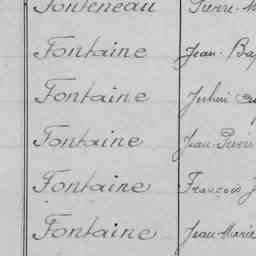 Fonteneau Pierre-M
Fontaine Jean-Bap
Fontaine
Fontaine Jean-Pierre
Fontaine François J
Fontaine Jean-Marie